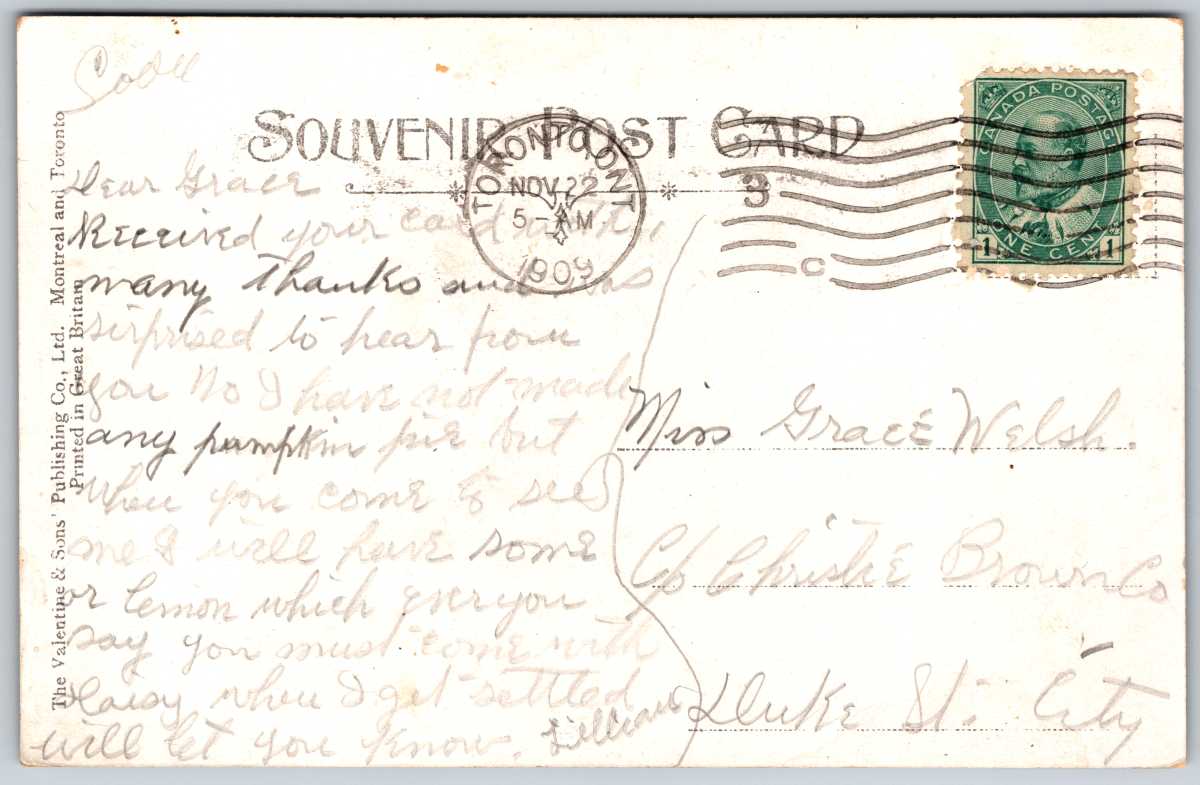 SOUVENIR POST CARD
TORONTO, ONT
NOV 22
5 - M
1909
3
C
CANADA POSTAGE
1 ONE CENT 1
The Valentine & Sons' Publishing Co., Ltd. Montreal and Toronto
Printed in Great Britain
Dear Grace
Received your card
many thanks and was
sirprised to hear from
you No I have not made
any pumpkin pie but
when you come to see
me I will have some
or lemon which ever you
say you must come with
Daisy when I get settled
will let you know. Lillian
Miss Grace Welsh.
C/o Christie Brown Co
Duke St. City